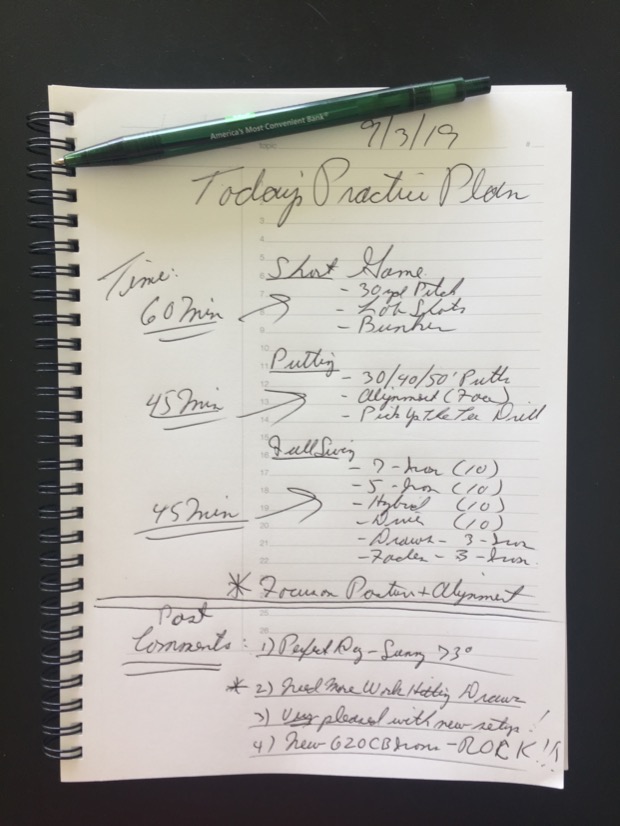 America's Most Convenient Bank®
topic
9/3/19
Today's Practice Plan
Time:
Short Game
- 30 yd Pitch
60 Min
- Lob Shots
- Bunker
Putting
- 30/40/50' Putts
45 Min
- Alignment (Face)
- Pick Up the Tee Drill
Full Swing
- 7 - Iron (10)
- 5 - Iron (10)
- Hybrid (10)
45 Min
- Driver (10)
- Draws - 3 - Iron
- Fades - 3 - Iron
* Focus on Posture + Alignment
Post
Comments: 1) Perfect Day - Sunny 73°
* 2) Need More Work Hitting Draws
3) Very pleased with new setup!
4) New G20CB Irons - ROCK!!!